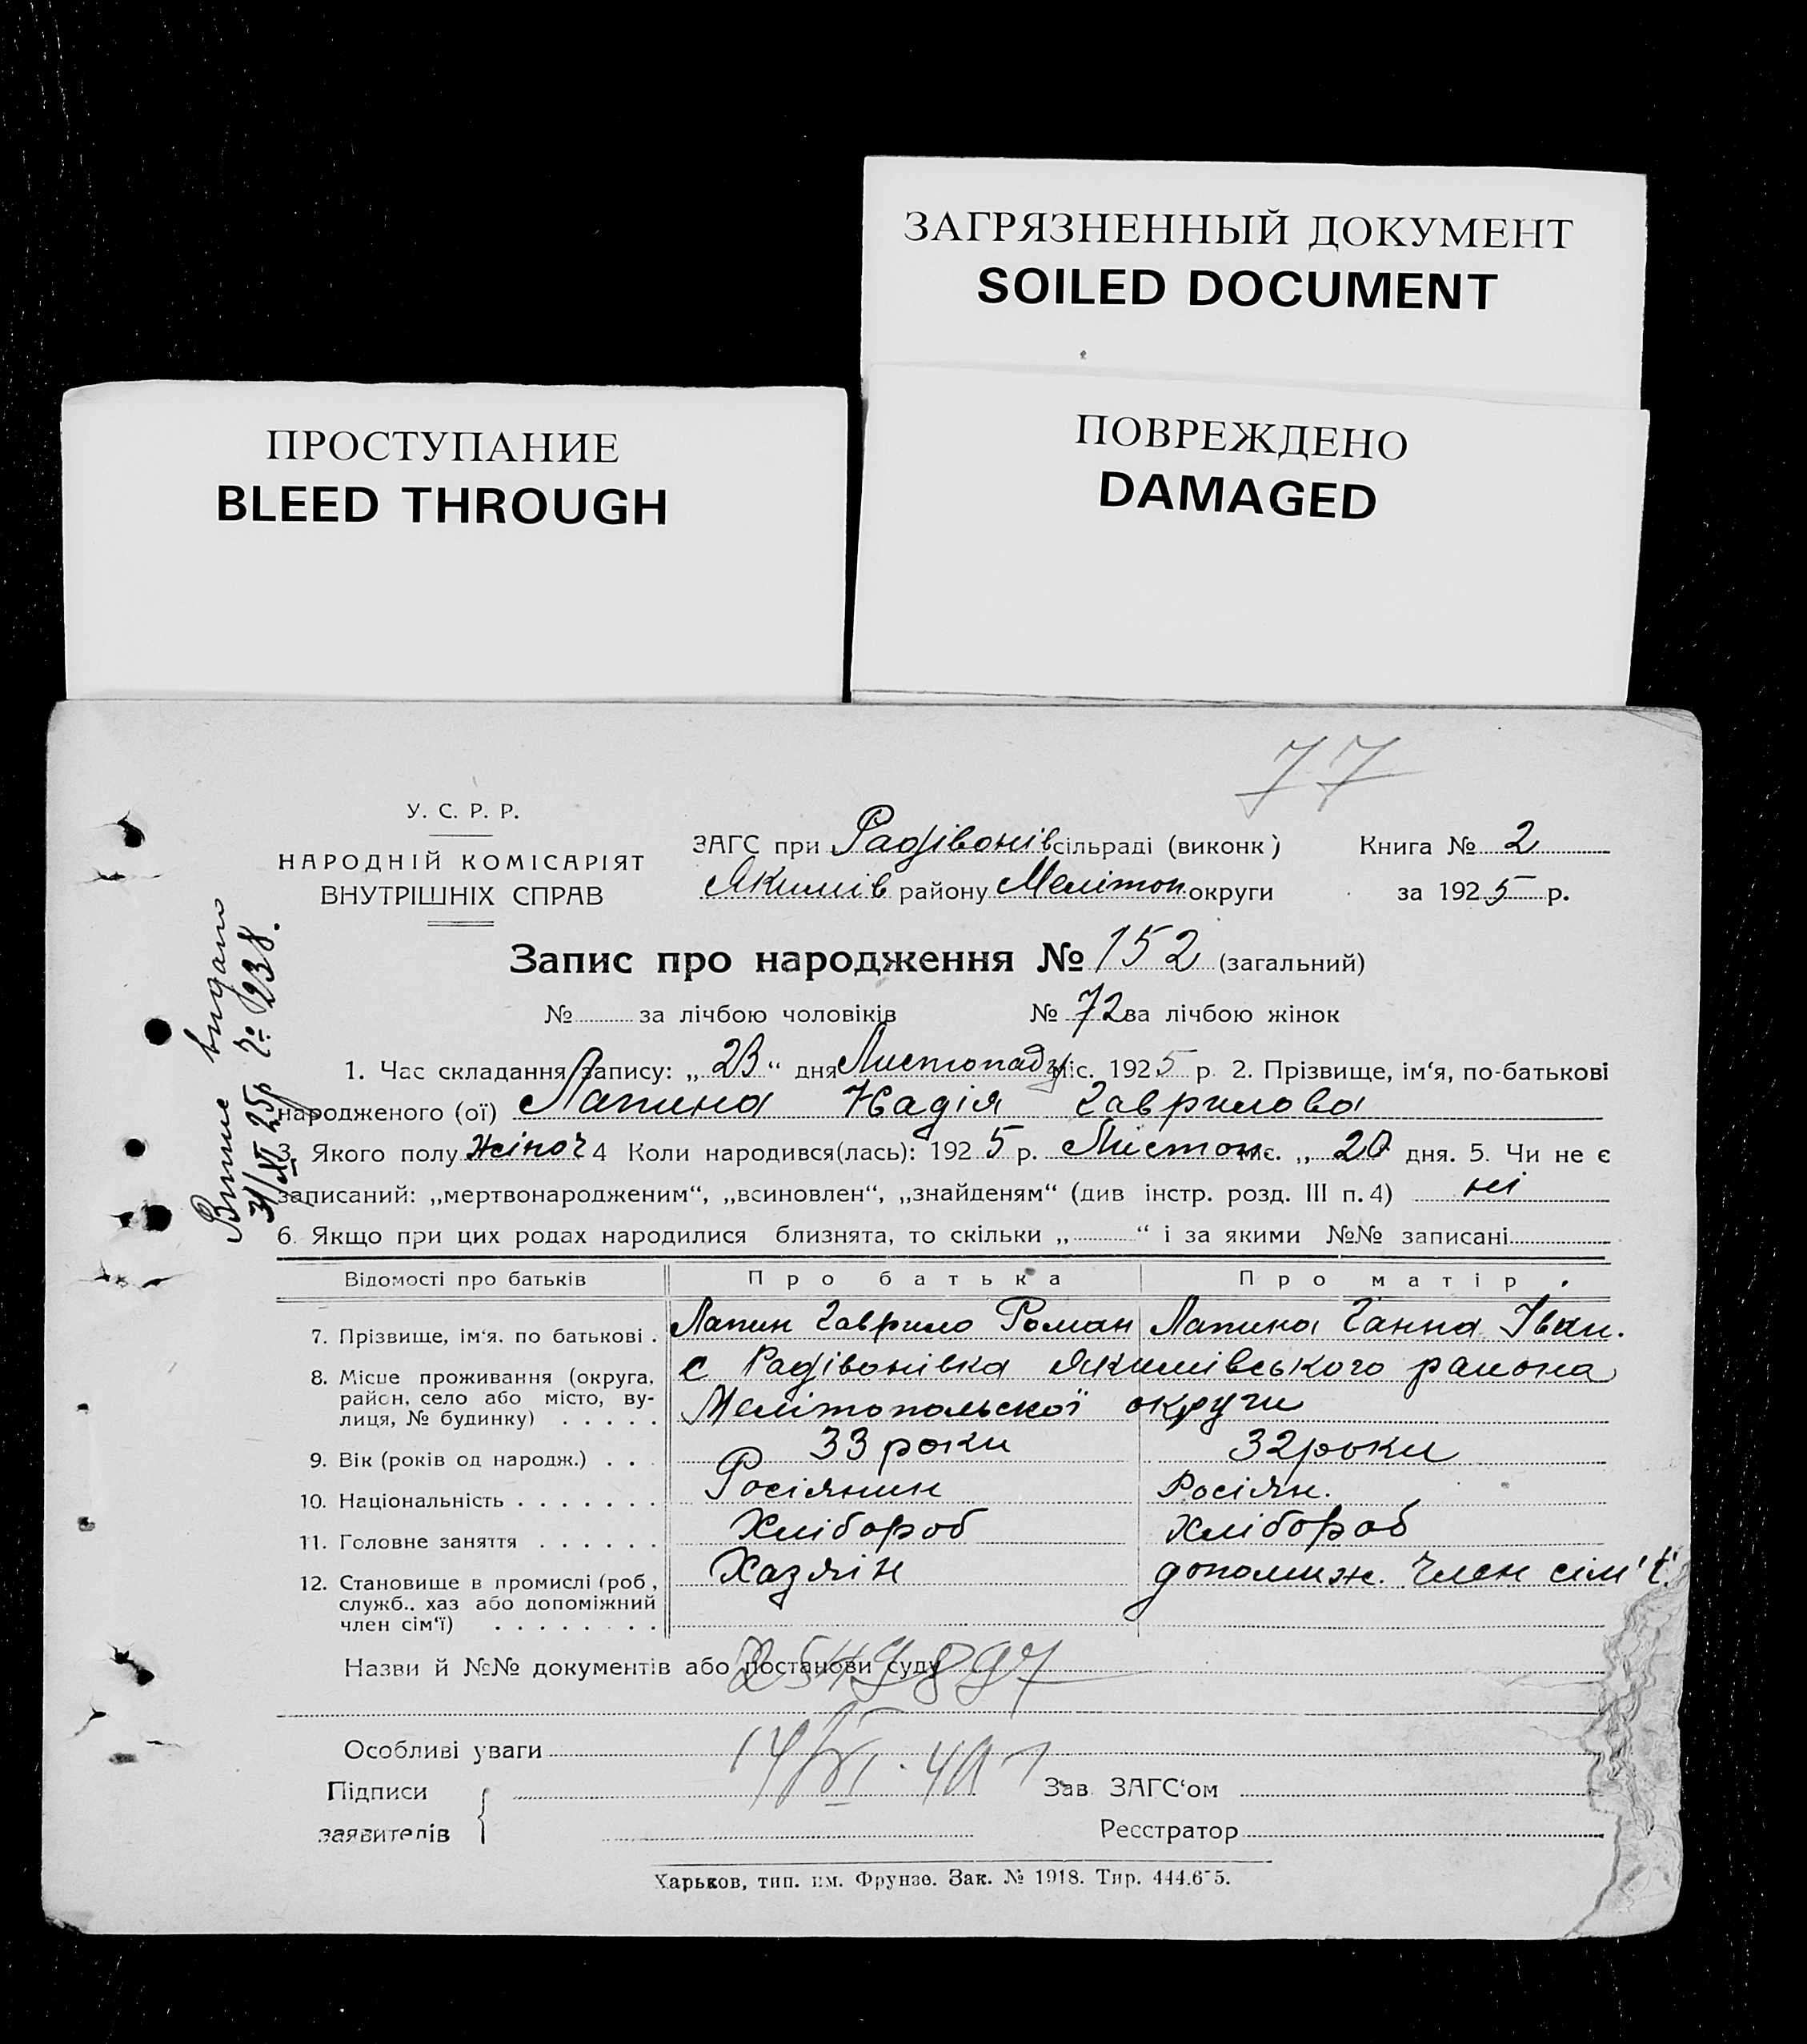 ЗАГРЯЗНЕННЫЙ ДОКУМЕНТ
SOILED DOCUMENT
ПРОСТУПАНИЕ
BLEED THROUGH
ПОВРЕЖДЕНО
DAMAGED
77
У. С. Р. Р.
НАРОДНІЙ КОМІСАРІЯТ
ВНУТРІШНІХ СПРАВ
ЗАГС при Радівонів сільраді (виконк)
Якимів району Мелітоп. округи
Книга № 2
за 1925 р.
Запис про народження № 152 (загальний)
№ за лічбою чоловіків № 72 за лічбою жінок
Витяг видано
31/XI 25р № 238.
1. Час складання запису: „23“ дня Листопаду міс. 1925 р. 2. Прізвище, ім‘я, по-батькові
народженого (ої) Лапина Надія Гаврилова
3. Якого полу жіноч 4 Коли народився(лась): 1925 р. Листоп міс. „20 дня. 5. Чи не є
записаний: „мертвонародженим“, „всиновлен“, „знайденям“ (див інстр. розд. III п. 4) ні
6. Якщо при цих родах народилися близнята, то скільки „ “ і за якими №№ записані
Відомості про батьків Про батька Про матір
7. Прізвище, ім‘я. по батькові . Лапин Гаврило Роман Лапина Ганна Іван.
8. Місце проживання (округа, район, село або місто, вулиця, № будинку) с Радівонівка Якимівського района
Мелітопольскої округи
9. Вік (років од народж.) . . 33 роки 32 роки
10. Національність . . . . . . . Росіянин Росіян.
11. Головне заняття . . . . . . Хлібороб Хлібороб
12. Становище в промислі (роб, служб., хаз або допоміжний член сім‘ї) . . . . . . . . Хазяїн допоміж. член сім'ї.
Назви й №№ документів або постанови суду 2549897
Особливі уваги
14/VI. 41
Підписи
заявителів
Зав ЗАГС‘ом
Реєстратор
Харьков, тип. им. Фрунзе. Зак. № 1918. Тир. 444.675.